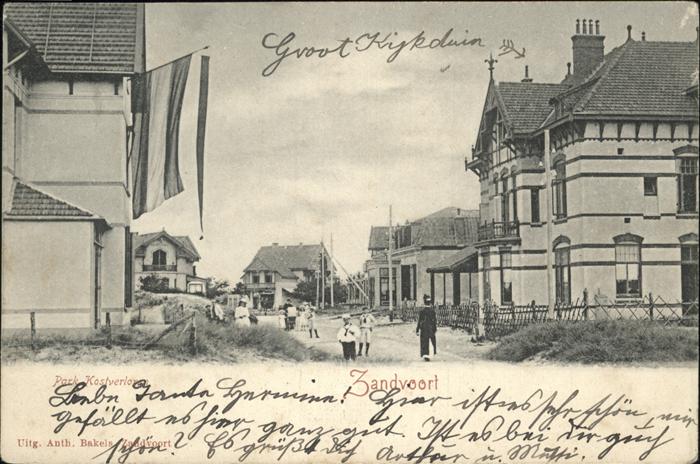 Groot Kijkduin
Park Kostverloren
Zandvoort
Liebe Tante Hermine! Hier ist es sehr schön, mir
gefällt es hier ganz gut. Ist es bei dir auch
schön? Es grüßt dich Arthur u. Mutti.
Uitg. Anth. Bakels, Zandvoort